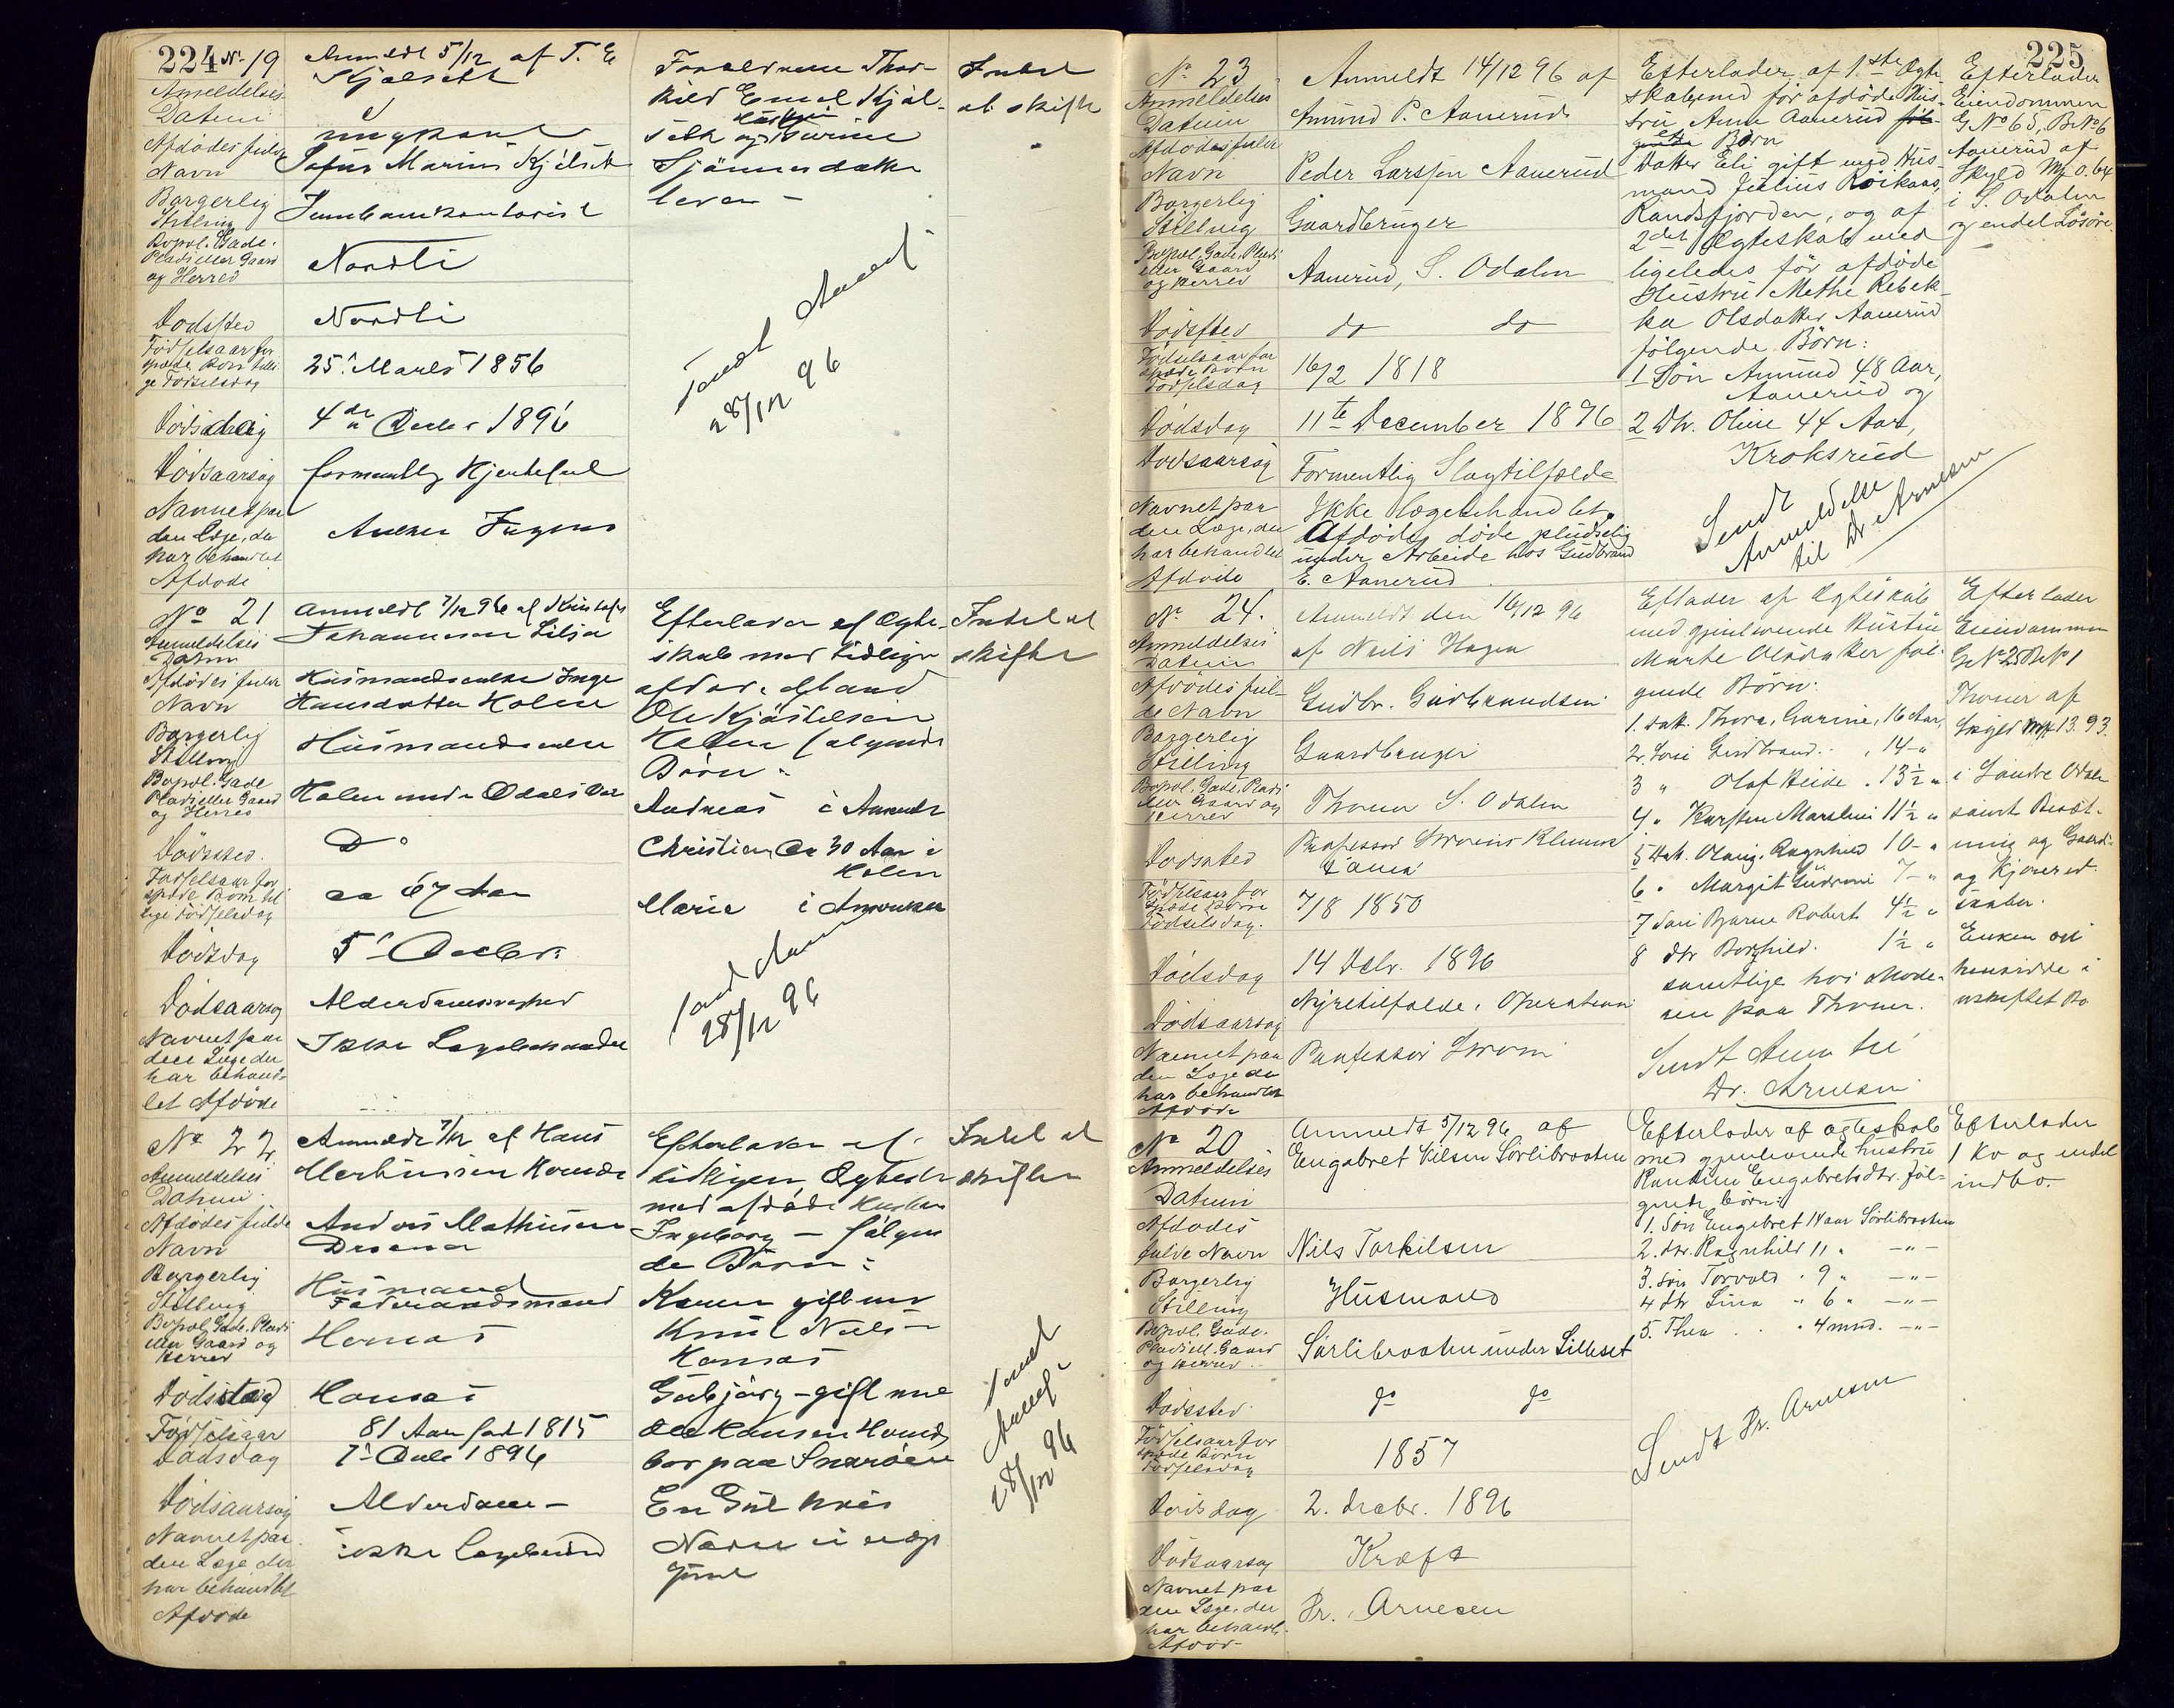 224 No 19
Anmeldelses
Datum
Afdødes fulde
Navn
Borgerlig
Stilling
Bopæl. Gade.
Plads eller Gaard
og Herred
Dødssted
Fødselsaar for
spæde Børn tilli
ge Fødselsdag
Dødsdag
Dødsaarsag
Navnet paa
den Læge, der
har behandlet
Afdøde
Anmeldt 5/12 af T. E
Kjølseth
ungkarl
Sofus Marius Kjølseth
Jernbanekontorist
Nordli
Nordli
25. Marts 1856
4de Decbr 1896
formentlig Hjertefeil
Forældrene Thor-
kild Emil Kjøl-
seth og Karine
lever -
Intet
at skifte
Sendt Anmel
28/12 96
No 21
Anmeldelses
Datum
Afdødes fulde
Navn
Borgerlig
Stilling
Bopæl. Gade
Plads eller Gaard
og Herred
Dødssted.
Fødselsaar for
spæde Børn til
lige Fødselsdag
Dødsdag
Dødsaarsag
Navnet paa
den Læge der
har behand-
let Afdøde
Anmeldt 7/12 96 af
Johannesen Lilja
Husmandsenke Inge
Hansdatter Holen
Husmandsenke
Holen under
Do
ca 67 Aar
5' Decbr.
Alderdomssvaghed
Ikke Lægebehandlet
Efterlader af Ægte-
skab med tidligere
afdøde Mand
Ole
Holen følgende
Børn:
Andreas i Amerika
Christian Ca 30 Aar i
Holen
Marie i Amerika
Intet at
skifte
Sendt Anm
28/12 96
No 22
Anmeldelses
Datum
Afdødes fulde
Navn
Borgerlig
Stilling
Bopæl. Gade. Plads
eller Gaard og
Herred
Dødsstad
Fødselsaar
Dødsdag
Dødsaarsag
Navnet paa
den Læge der
har behandlet
Afdøde
Anmeldt 7/12 af Hans
Anders Mathisen
Husmand
Fødraadsmand
Hornæs
Hornæs
81 Aar født 1815
1' Decbr 1896
Alderdom-
ikke Lægebehand
Efterlader af
tidligere Ægtesk
med afdøde Hustru
Ingeborg - følgen
de Børn:
Karen gift med
Knut Niels-
Hornæs
Gubjørg - gift med
Ole Hansen
bor paa Snarøen
En Gut hvis
Navn ei er op
givet
Intet at
skifte
Sendt
Anmel
28/12 96
225
No 23
Anmeldelses
Datum
Afdødes fulde
Navn
Borgerlig
Stilling
Bopæl, Gade, Plads
eller Gaard
og Herred
Dødssted
Fødselsaar for
spæde Børn
Fødselsdag
Dødsdag
Dødsaarsag
Navnet paa
den Læge, der
har behandlet
Afdøde
Anmeldt 14/12 96 af
Amund P. Aanerud
Peder Larssen Aanerud
Gaardbruger
Aanerud, S. Odalen
do do
16/2 1818
11te December 1896
Formentlig Slagtilfælde
Ikke lægebehandlet.
Afdøde døde pludselig
under Arbeide hos Gudbrand
E. Aanerud
Efterlader af 1ste Ægte-
skab med før afdøde Hus-
tru Anne Aanerud
Børn
Datter Eli gift med Hus-
mand Julius Röikaas,
Randsfjorden, og af
2det Ægteskab med
ligeledes før afdøde
Hustru Methe Rebek-
ka Olsdatter Aanerud
følgende Børn:
1 Søn Amund 48 Aar,
Aanerud og
2 Dtr. Oline 44 Aar,
Kroksrud
Sendt
Anmeldelse
til Dr. Arnesen
Efterlader
Eiendommen
G No 65, B No 6
Aanerud af
Skyld Mk 0.64
i S. Odalen
og endel Løsøre.
No 24.
Anmeldelses
Datum
Afdødes ful-
de Navn
Borgerlig
Stilling
Bopæl, Gade, Plads
eller Gaard og
Herred
Dødssted
Fødselsaar for
spæde Børn
Fødselsdag.
Dødsdag
Dødsaarsag
Navnet paa
den Læge der
har behandlet
Afdøde
Anmeldt den 16/12 96
af Nils Hagen
Gudbr. Gudbrandsen
Gaardbruger
Thoner S. Odalen
Professor Strøms Klinik
7/8 1850
14 Decbr. 1896
Nyretilfælde, Operation
Professor Strøm
Efterlader af Ægteskab
med gjenlevende Hustru
Marte Olsdatter føl-
gende Børn:
1. Datt. Thora, Gurine, 16 Aar,
2. Søn Gudbrand. " 14 - "
3 " Olaf Heide . 13 1/2 "
4 " Karsten Marelius 11 1/2 "
5 Datt. Olaug, Ragnhild 10 - "
6 " Margit Gudrun 7 - "
7 Søn Bjarne Robert 4 1/2 "
8 dtr Borghild. 1 1/2 "
samtlige hos Mode-
ren paa Thoner.
Sendt Anm til
Dr. Arnesen
Efterlader
Eiendommen
G No 25 B No 1
Thoner af
Skyld Mk 13.93
i Søndre Odalen
samt Besæt-
ning og Gaards-
og Kjørered-
skaber.
Enken vil
hensidde i
uskiftet Bo
No 20
Anmeldelses
Datum
Afdødes
fulde Navn
Borgerlig
Stilling
Bopæl. Gade.
Plads ell. Gaard
og Herred
Dødssted
Fødselsaar for
spæde Børn
Fødselsdag
Dødsdag
Dødsaarsag
Navnet paa
den Læge, der
har behandl.
Afdøde
Anmeldt 5/12 96 af
Engebret Nilsen Sörlibraaten
Nils Torkilsen
Husmand
Sörlibraaten under Lilleset
do do
1857
2. decbr. 1896
Kræft
Dr. Arnesen
Efterlader af ægteskab
med gjenlevende hustru
Engebretsdtr. føl-
gende børn:
1. Søn Engebret 14 aar Sörlibraaten
2. dtr. Ragnhild 11 " -"-
3. søn Torvald " 9 " -"-
4 dtr Lina " 6 " -"-
5. Thea . . " 4 mnd. -"-
Sendt Dr. Arnesen
Efterlader
1 ko og endel
indbo.